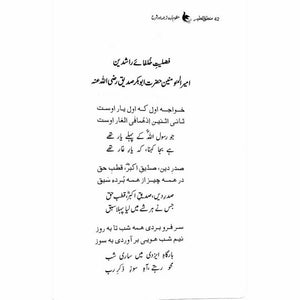 42 منطق الطیر
فضیلتِ خلفائے راشدین
امیر المومنین حضرت ابوبکر صدیق رضی اللہ عنہ
خواجه اول که اول یار اوست
ثانی اثنین اذهما فی الغار اوست
جو رسول اللہ کے پہلے یار تھے
ہے بجا کہنا، کہ یارِ غار تھے
صدر دین، صدیق اکبر، قطب حق
در همه چیز از همه برده سبق
صدر دیں، صدیق اکبر، قطب حق
جس نے ہر شے میں لیا پہلا سبق
سر فرو بردی همه شب تا به روز
نیم شب هویی بر آوردی به سوز
بارگاہِ ایزدی میں ساری شب
محو رہتے، آہ سوز ذکرِ رب